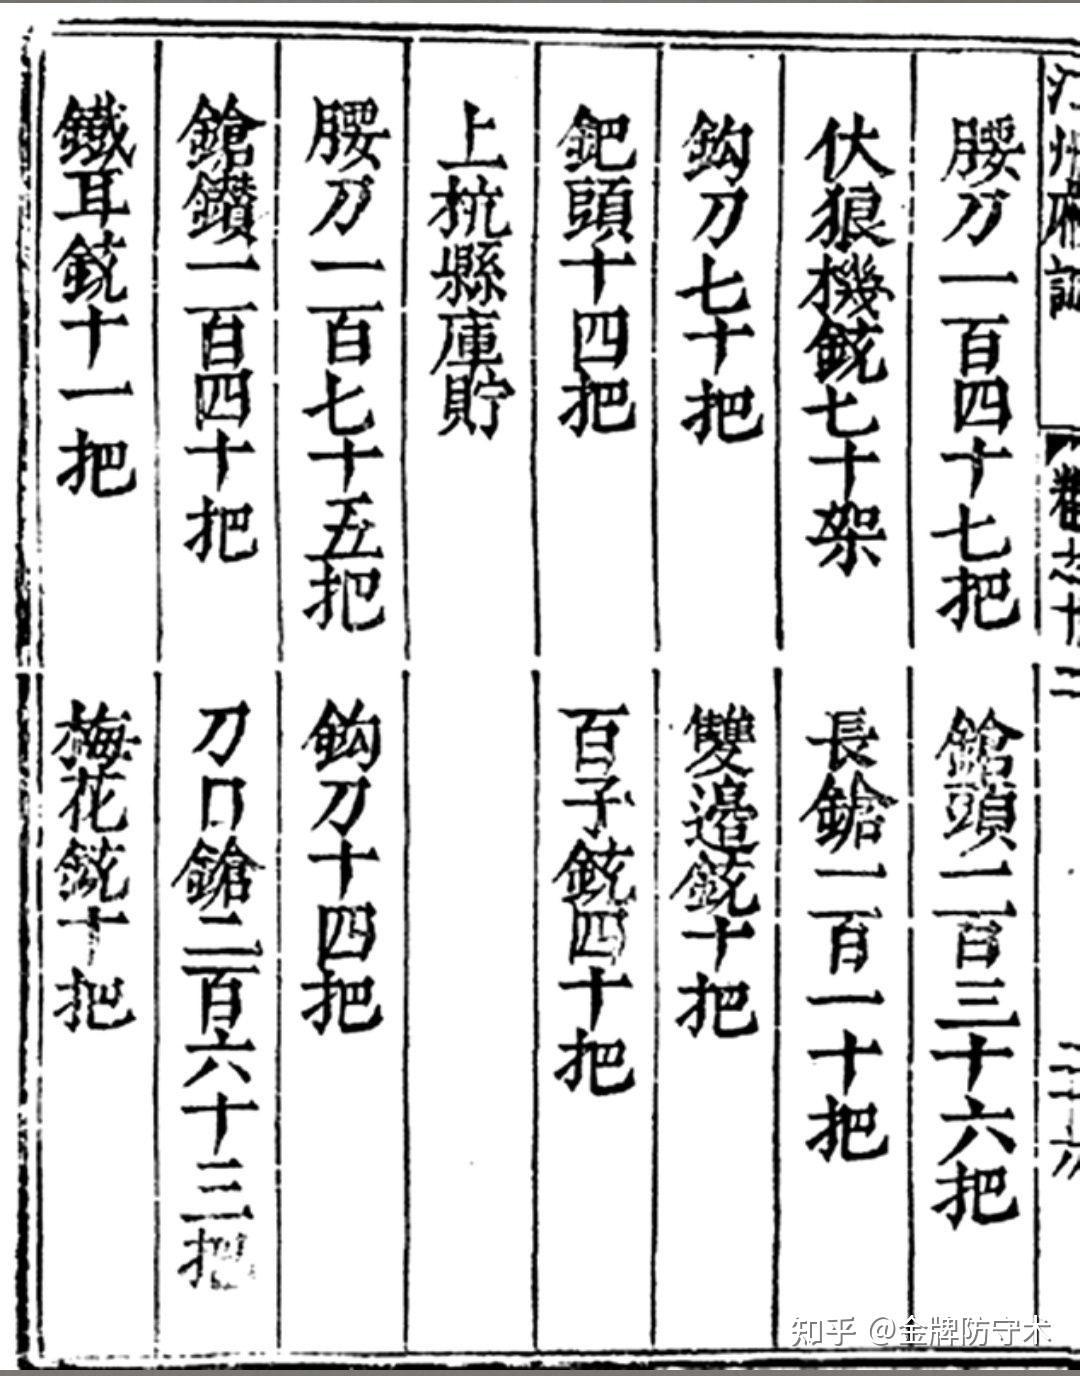 汀州府誌 卷之十二
腰刀一百四十七把 鎗頭二百三十六把
伏狼機銃七十架 長鎗二百一十把
鈎刀七十把 雙邉銃十把
鈀頭十四把 百子銃四十把
上杭縣庫貯
腰刀一百七十五把 鈎刀十四把
鎗鑽一百四十把 刀口鎗二百六十三把
鐵耳銃十一把 梅花銃十把
知乎 @金牌防守术